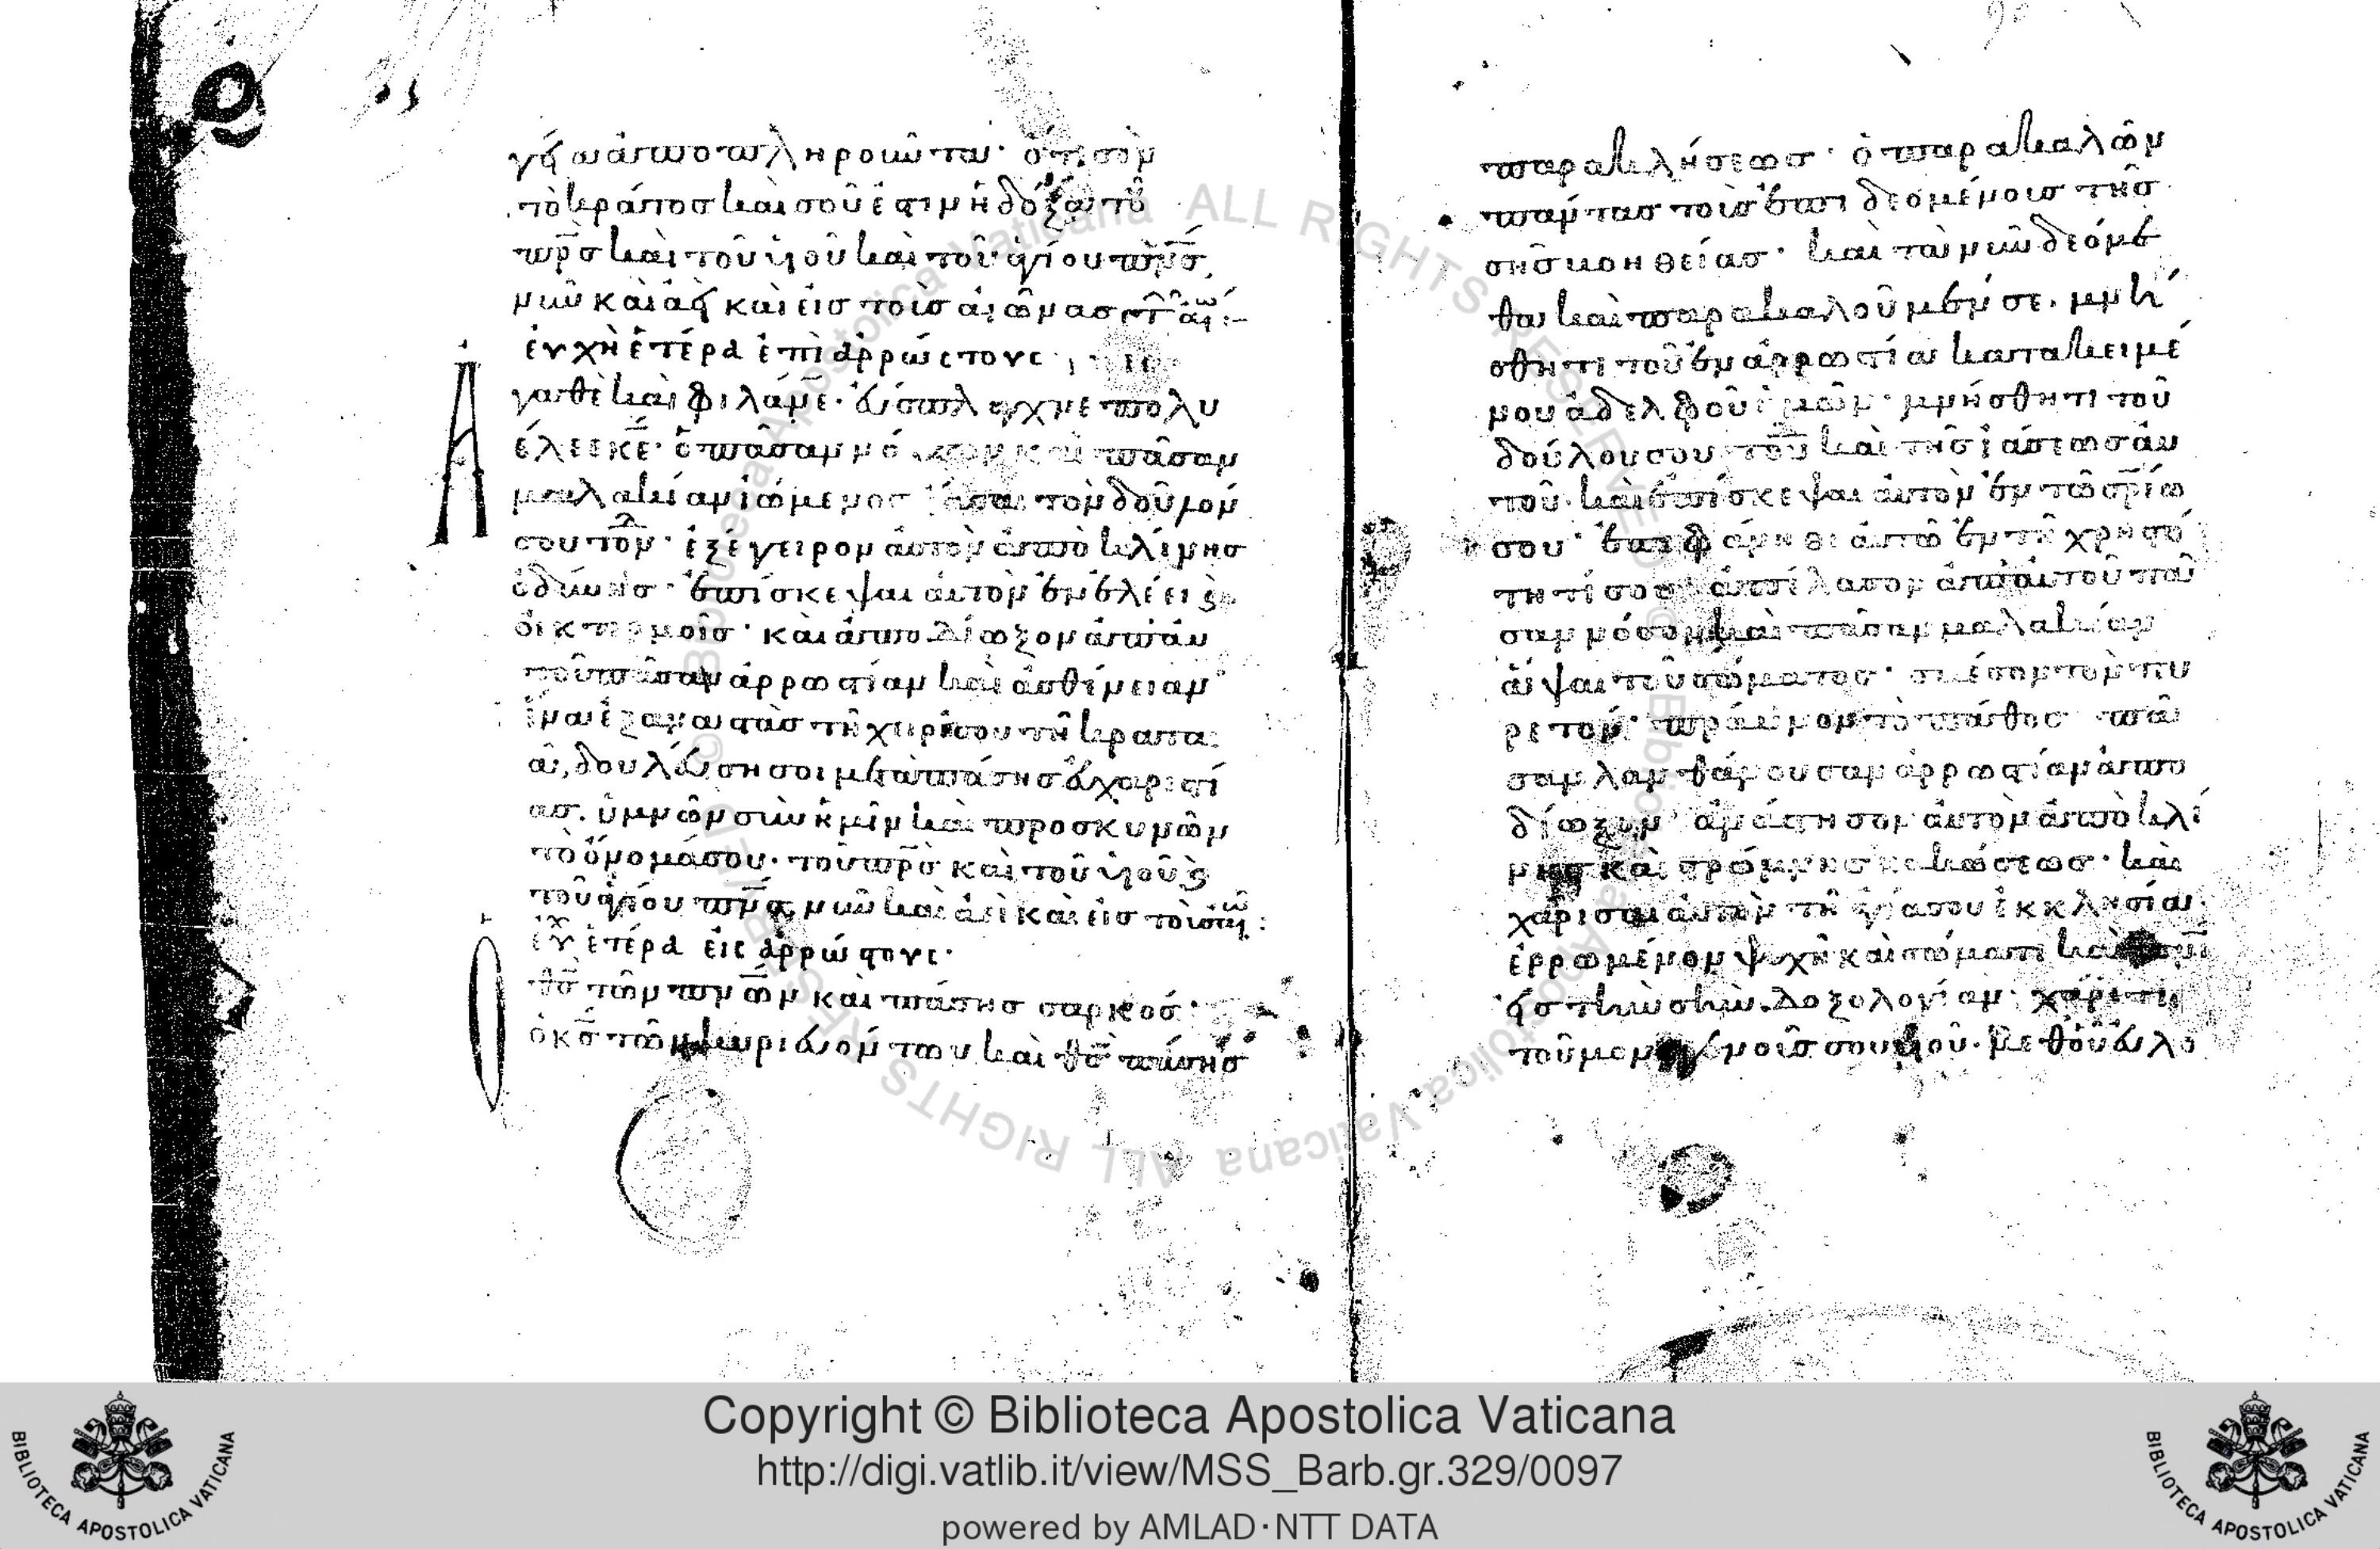 γίαι ἀποπληροῦνται· ὅτι σὸν
τὸ κράτος καὶ σοῦ ἐστιν ἡ δόξα τοῦ
πρς καὶ τοῦ υἱοῦ καὶ τοῦ ἁγίου πνς
νῦν καὶ ἀεὶ καὶ εἰς τοὺς αἰῶνας τῶν αἰώ:-
εὐχὴ ἑτέρα ἐπὶ ἀρρώστους
Ἀγαθὲ καὶ φιλανε· εὔσπλαγχνε πολυ
έλεε κε· ὁ πᾶσαν νόσον καὶ πᾶσαν
μαλακίαν ἰώμενος ἴασαι τὸν δοῦλον
σου τον· ἐξέγειρον αὐτὸν ἀπὸ κλίνης
ὀδύνης· ἐπίσκεψαι αὐτὸν ἐν ἐλέει καὶ
οἰκτιρμοῖς· καὶ ἀποδίωξον ἀπ' αὐ
τοῦ πᾶσαν ἀρρωστίαν καὶ ἀσθένειαν
ἵνα ἐξαναστὰς τῇ χειρί σου τῇ κραται
ᾷ, δουλεύσῃ σοι μετὰ πάσης εὐχαριστί
ας. ὑμνῶν σὺν ἡμῖν καὶ προσκυνῶν
τὸ ὄνομά σου. τοῦ πρς καὶ τοῦ υἱοῦ καὶ
τοῦ ἁγίου πνς, νῦν καὶ ἀεὶ καὶ εἰς τοὺς αἰῶ:
εὐχ ἑτέρα εἰς ἀρρώστους·
Ὁ θς τῶν πνων καὶ πάσης σαρκός·
ὁ κς τῶν κυριευόντων καὶ θς πάσης
παρακλήσεως· ὁ παρακαλῶν
πάντας τοὺς ἐπιδεομένους τῆς
σῆς βοηθείας· καὶ τὰ νῦν δεόμε
θα καὶ παρακαλοῦμέν σε. μνή
σθητι τοῦ ἐν ἀρρωστίᾳ κατακειμέ
νου ἀδελφοῦ ἡμῶν· μνήσθητι τοῦ
δούλου σου τοῦ καὶ τῆς ἰάσεως αὐ
τοῦ. καὶ ἐπίσκεψαι αὐτὸν ἐν τῷ σρίω
σου· ἐπιφάνηθι αὐτῷ ἐν τῇ χρηστό
τητί σου ἀπέλασον ἀπ' αὐτοῦ πᾶ
σαν νόσον καὶ πᾶσαν μαλακίαν
ἅψαι τοῦ σώματος· σβέσον τὸν πυ
ρετόν· πράυνον τὸ πάθος πᾶ
σαν λανθάνουσαν ἀρρωστίαν ἀπο
δίωξον ἀνάστησον αὐτὸν ἀπὸ κλί
νης καὶ στρώμνης κακώσεως· καὶ
χάρισαι αὐτὸν τῇ ἁγίᾳ σου ἐκκλησίᾳ
ἐρρωμένον ψυχῇ καὶ σώματι καὶ πνι
εἰς τὴν σὴν δοξολογίαν· χάριτι
τοῦ μονογενοῦς σου υἱοῦ. μεθ' οὗ εὐλο
Copyright © Biblioteca Apostolica Vaticana
http://digi.vatlib.it/view/MSS_Barb.gr.329/0097
powered by AMLAD·NTT DATA
BIBLIOTECA APOSTOLICA VATICANA
BIBLIOTECA APOSTOLICA VATICANA